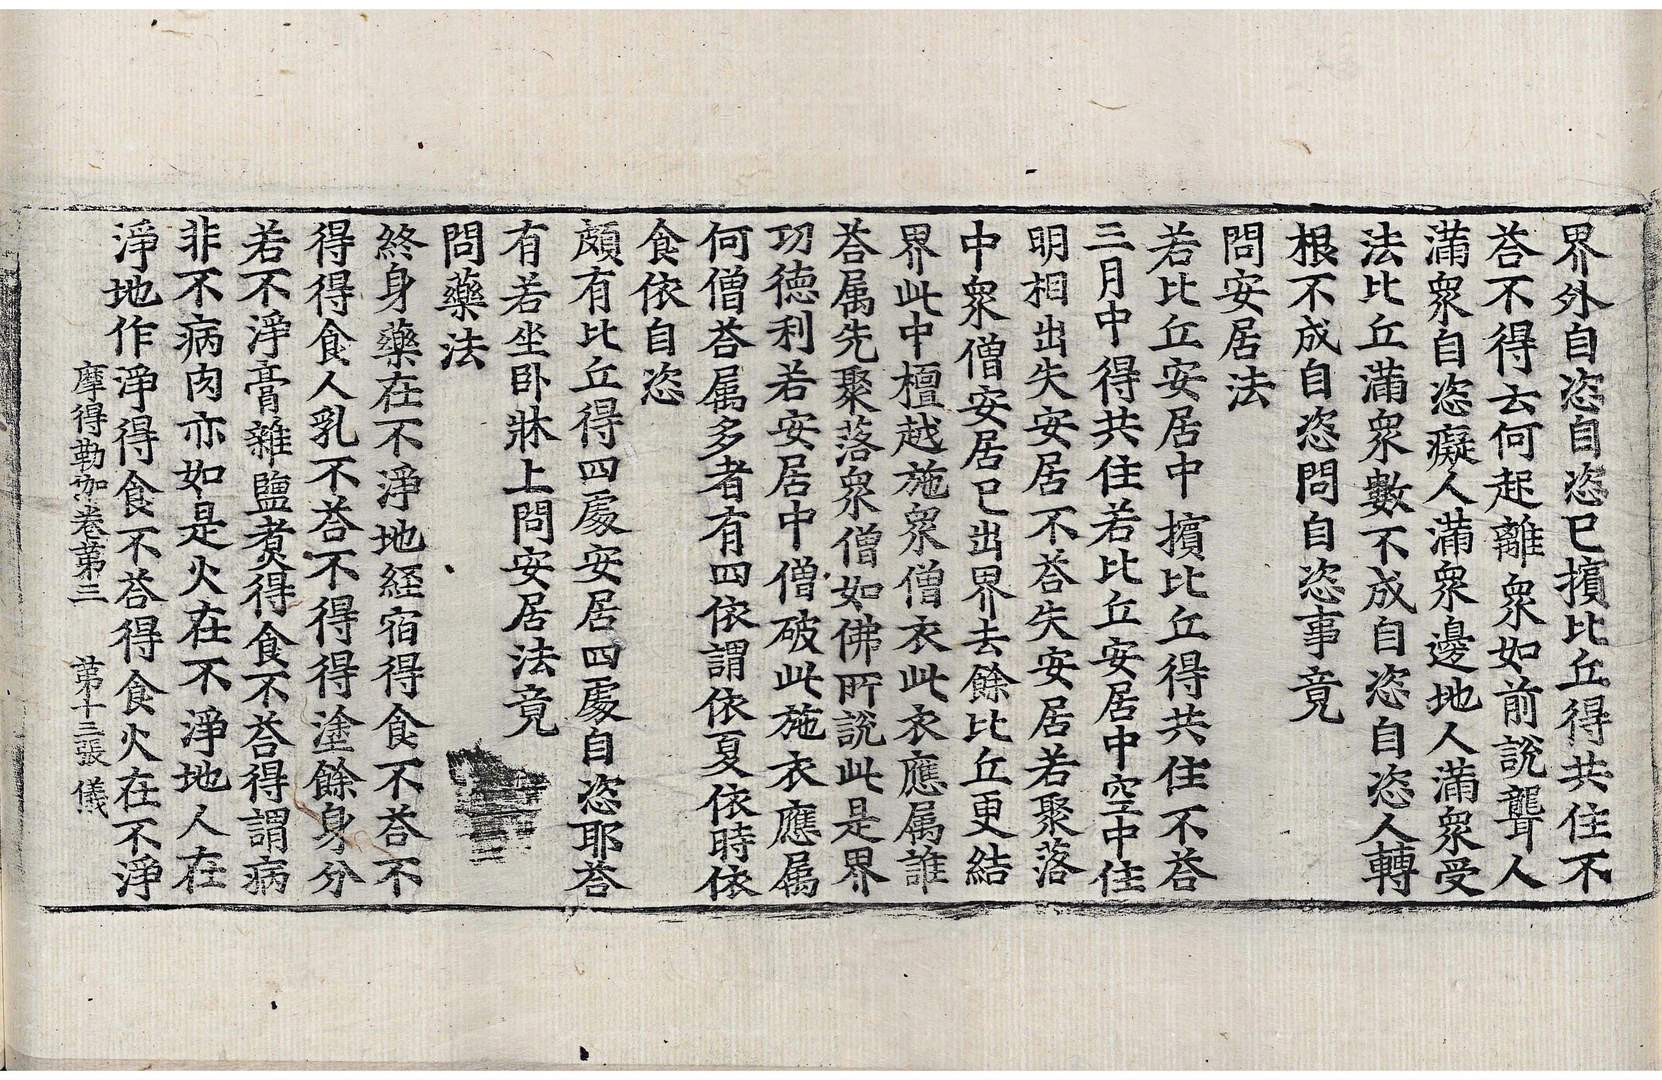 界外自恣自恣已擯比丘得共住不
荅不得去何起離衆如前說聾人
滿衆自恣癡人滿衆邊地人滿衆受
法比丘滿衆數不成自恣自恣人轉
根不成自恣問自恣事竟
問安居法
若比丘安居中擯比丘得共住不荅
三月中得共住若比丘安居中空中住
明相出失安居不荅失安居若聚落
中衆僧安居已出界去餘比丘更結
界此中檀越施衆僧衣此衣應属誰
荅属先聚落衆僧如佛所說此是界
功德利若安居中僧破此施衣應属
何僧荅属多者有四依謂依夏依時依
食依自恣
頗有比丘得四處安居四處自恣耶荅
有若坐卧牀上問安居法竟
問藥法
終身藥在不淨地経宿得食不荅不
得得食人乳不荅不得得塗餘身分
若不淨膏雜鹽煮得食不荅得謂病
非不病肉亦如是火在不淨地人在
淨地作淨得食不荅得食火在不淨
摩得勒伽卷第三　第十三張　儀